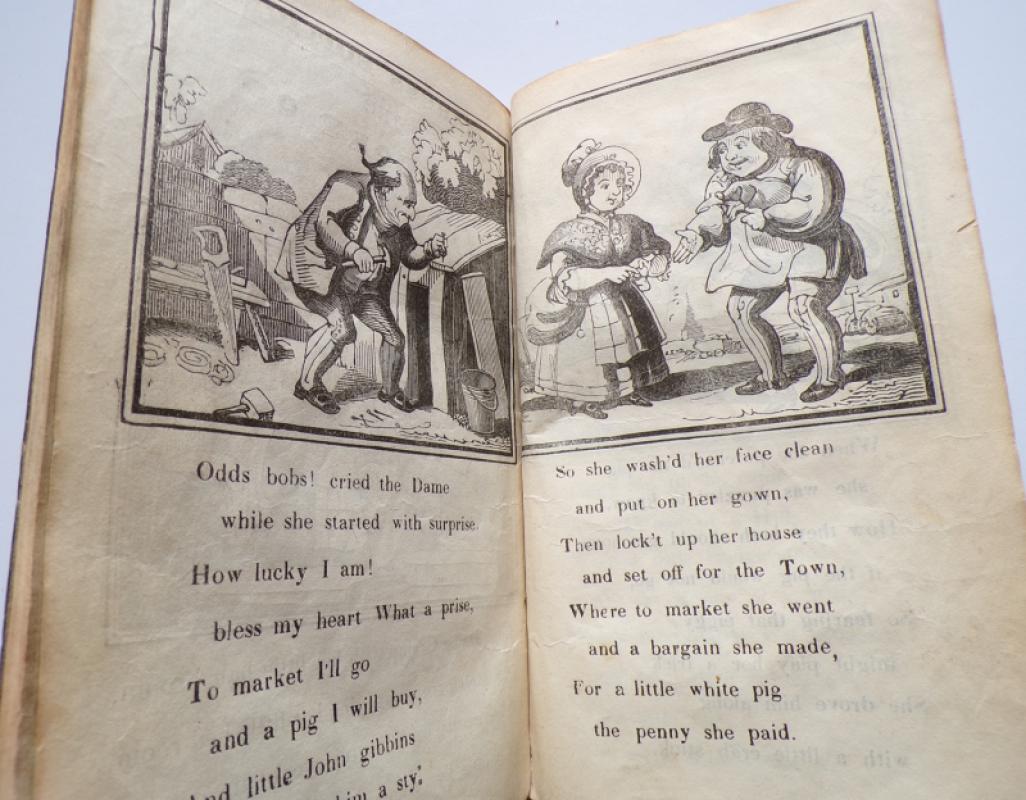 Odds bobs! cried the Dame
while she started with surprise.
How lucky I am!
bless my heart What a prise,
To market I'll go
and a pig I will buy,
And little John gibbins
him a sty;
So she wash'd her face clean
and put on her gown,
Then lock't up her house
and set off for the Town,
Where to market she went
and a bargain she made,
For a little white pig
the penny she paid.